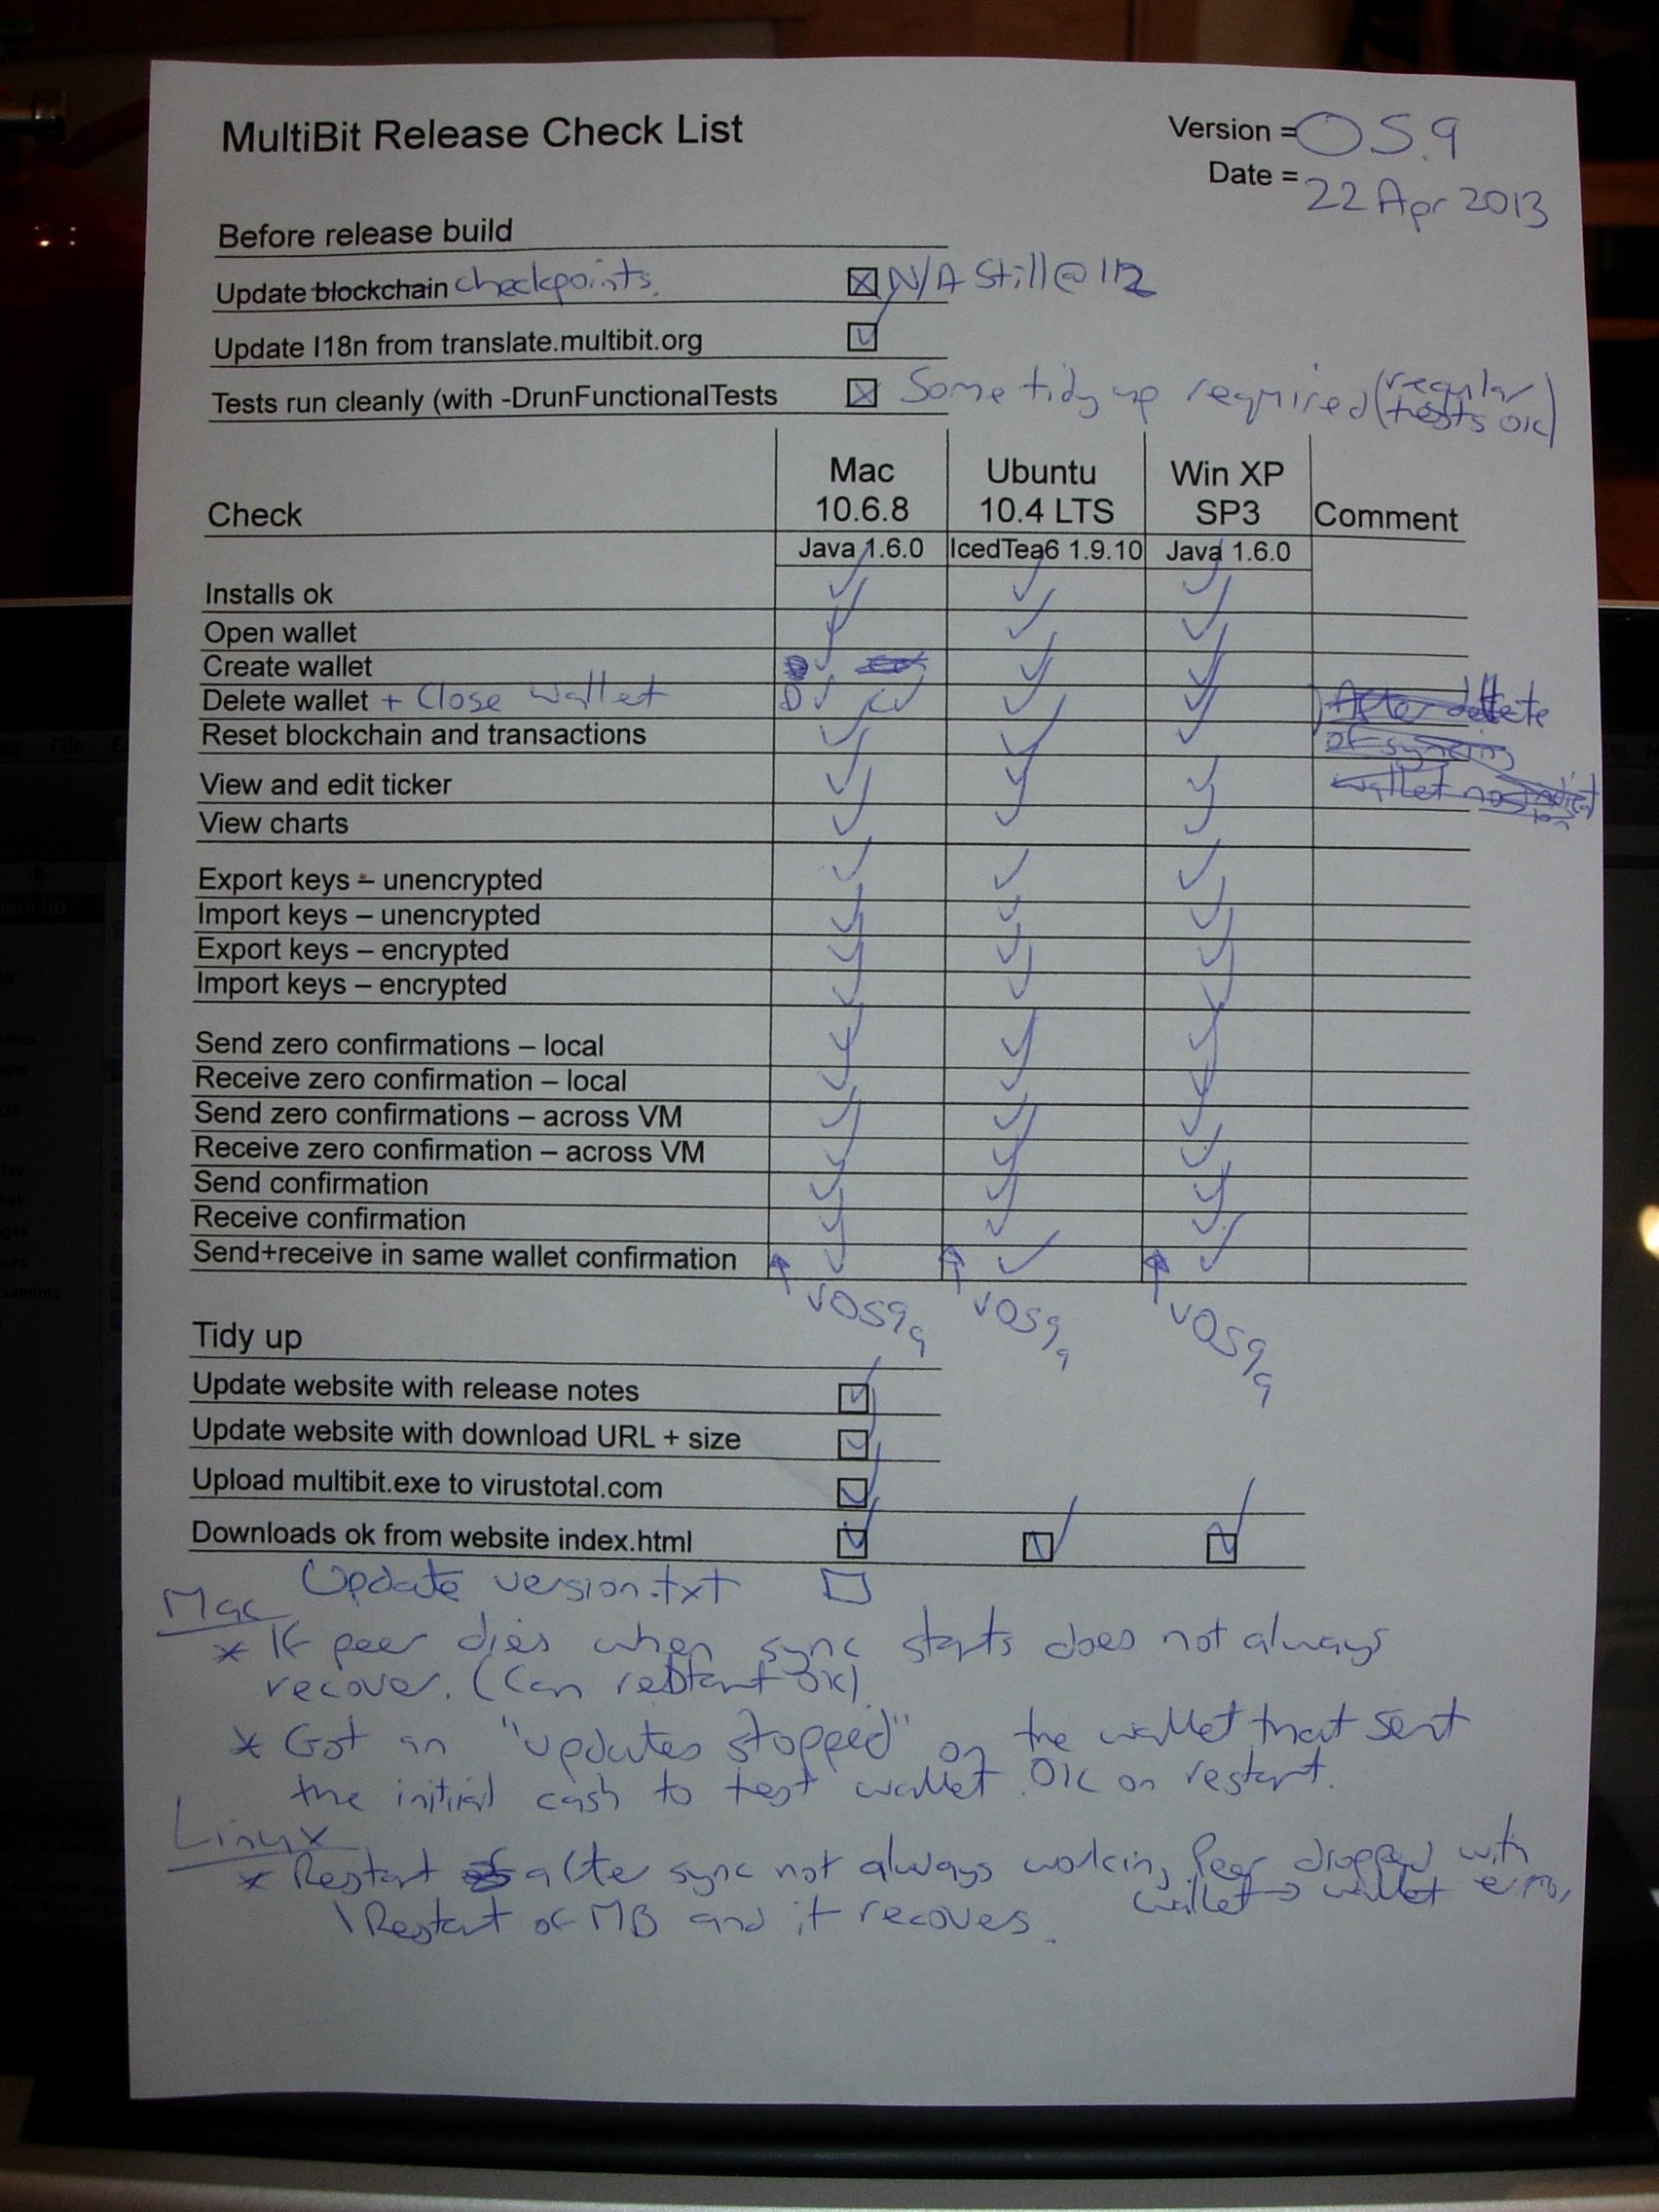 MultiBit Release Check List
Version = 0.5.9
Date = 22 Apr 2013
Before release build
Update blockchain checkpoints. ☒ N/A Still @ 112
Update I18n from translate.multibit.org ☑
Tests run cleanly (with -DrunFunctionalTests ☒ Some tidy up required (regular tests OK)
Check Mac 10.6.8 Ubuntu 10.4 LTS Win XP SP3 Comment
Java 1.6.0 IcedTea6 1.9.10 Java 1.6.0
Installs ok ✓ ✓ ✓
Open wallet ✓ ✓ ✓
Create wallet ✓ ✓ ✓
Delete wallet + Close wallet D✓ C✓ ✓ ✓ After delete
Reset blockchain and transactions ✓ ✓ ✓ of syncing
View and edit ticker ✓ ✓ ✓ wallet no
View charts ✓ ✓ ✓
Export keys – unencrypted ✓ ✓ ✓
Import keys – unencrypted ✓ ✓ ✓
Export keys – encrypted ✓ ✓ ✓
Import keys – encrypted ✓ ✓ ✓
Send zero confirmations – local ✓ ✓ ✓
Receive zero confirmation – local ✓ ✓ ✓
Send zero confirmations – across VM ✓ ✓ ✓
Receive zero confirmation – across VM ✓ ✓ ✓
Send confirmation ✓ ✓ ✓
Receive confirmation ✓ ✓ ✓
Send+receive in same wallet confirmation ✓ ✓ ✓
Tidy up
Update website with release notes ☑
Update website with download URL + size ☑
Upload multibit.exe to virustotal.com ☑
Downloads ok from website index.html ☑ ☑ ☑
Update version.txt ☐
Mac
* If peer dies when sync starts does not always
recover. (Can restart OK).
* Got an "updates stopped" on the wallet that sent
the initial cash to test wallet. OK on restart.
Linux
* Restart after sync not always working. Peer dropped with
wallet → wallet error,
Restart of MB and it recoves.